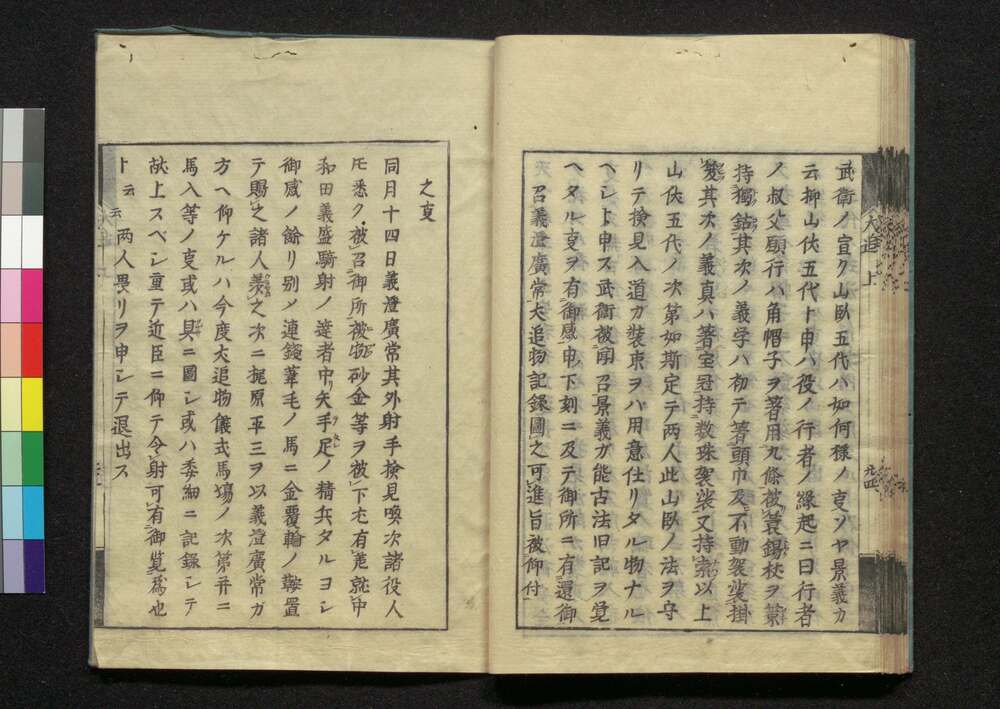 武衛ノ宣ク山臥五代ハ如何様ノ叓ソヤ景義カ
云抑山伏五代ト申ハ役ノ行者ノ縁起ニ曰行者
ノ叔父願行ハ角帽子ヲ著用九條袈裟錫杖ヲ
持獨鈷其次ノ義学ハ初テ著頭巾及不動袈裟掛
其次ノ義真ハ著宝冠持数珠袈裟又持索以上
山伏五代ノ次第如斯定テ両人此山臥ノ法ヲ守
リテ検見入道カ装束ヲハ用意仕リタル物ナル
ヘシト申ス武衛被聞召景義カ能古法旧記ヲ覚
ヘタル叓ヲ有御感申ノ下刻ニ及テ御所ニ有還御
召義澄廣常犬追物記録圖之可進旨被仰付
之叓
同月十四日義澄廣常其外射手検見喚次諸役人
圧悉ク被召御所被物砂金等ヲ被下尤有差就中
和田義盛騎射ノ達者中リ矢手足ノ精兵タルヨシ
御感ノ餘リ別メ連錢葦毛ノ馬ニ金覆輪ノ鞍置
テ賜之諸人羨之次ニ梶原平三ヲ以義澄廣常ガ
方ヘ仰ケルハ今度犬追物儀式馬塲ノ次第并ニ
馬入等ノ叓或ハ具ニ圖シ或ハ委細ニ記録シテ
献上スベシ重テ近臣ニ仰テ令射可有御覧為也
ト云云両人畏リヲ申シテ退出ス
犬追上
九四